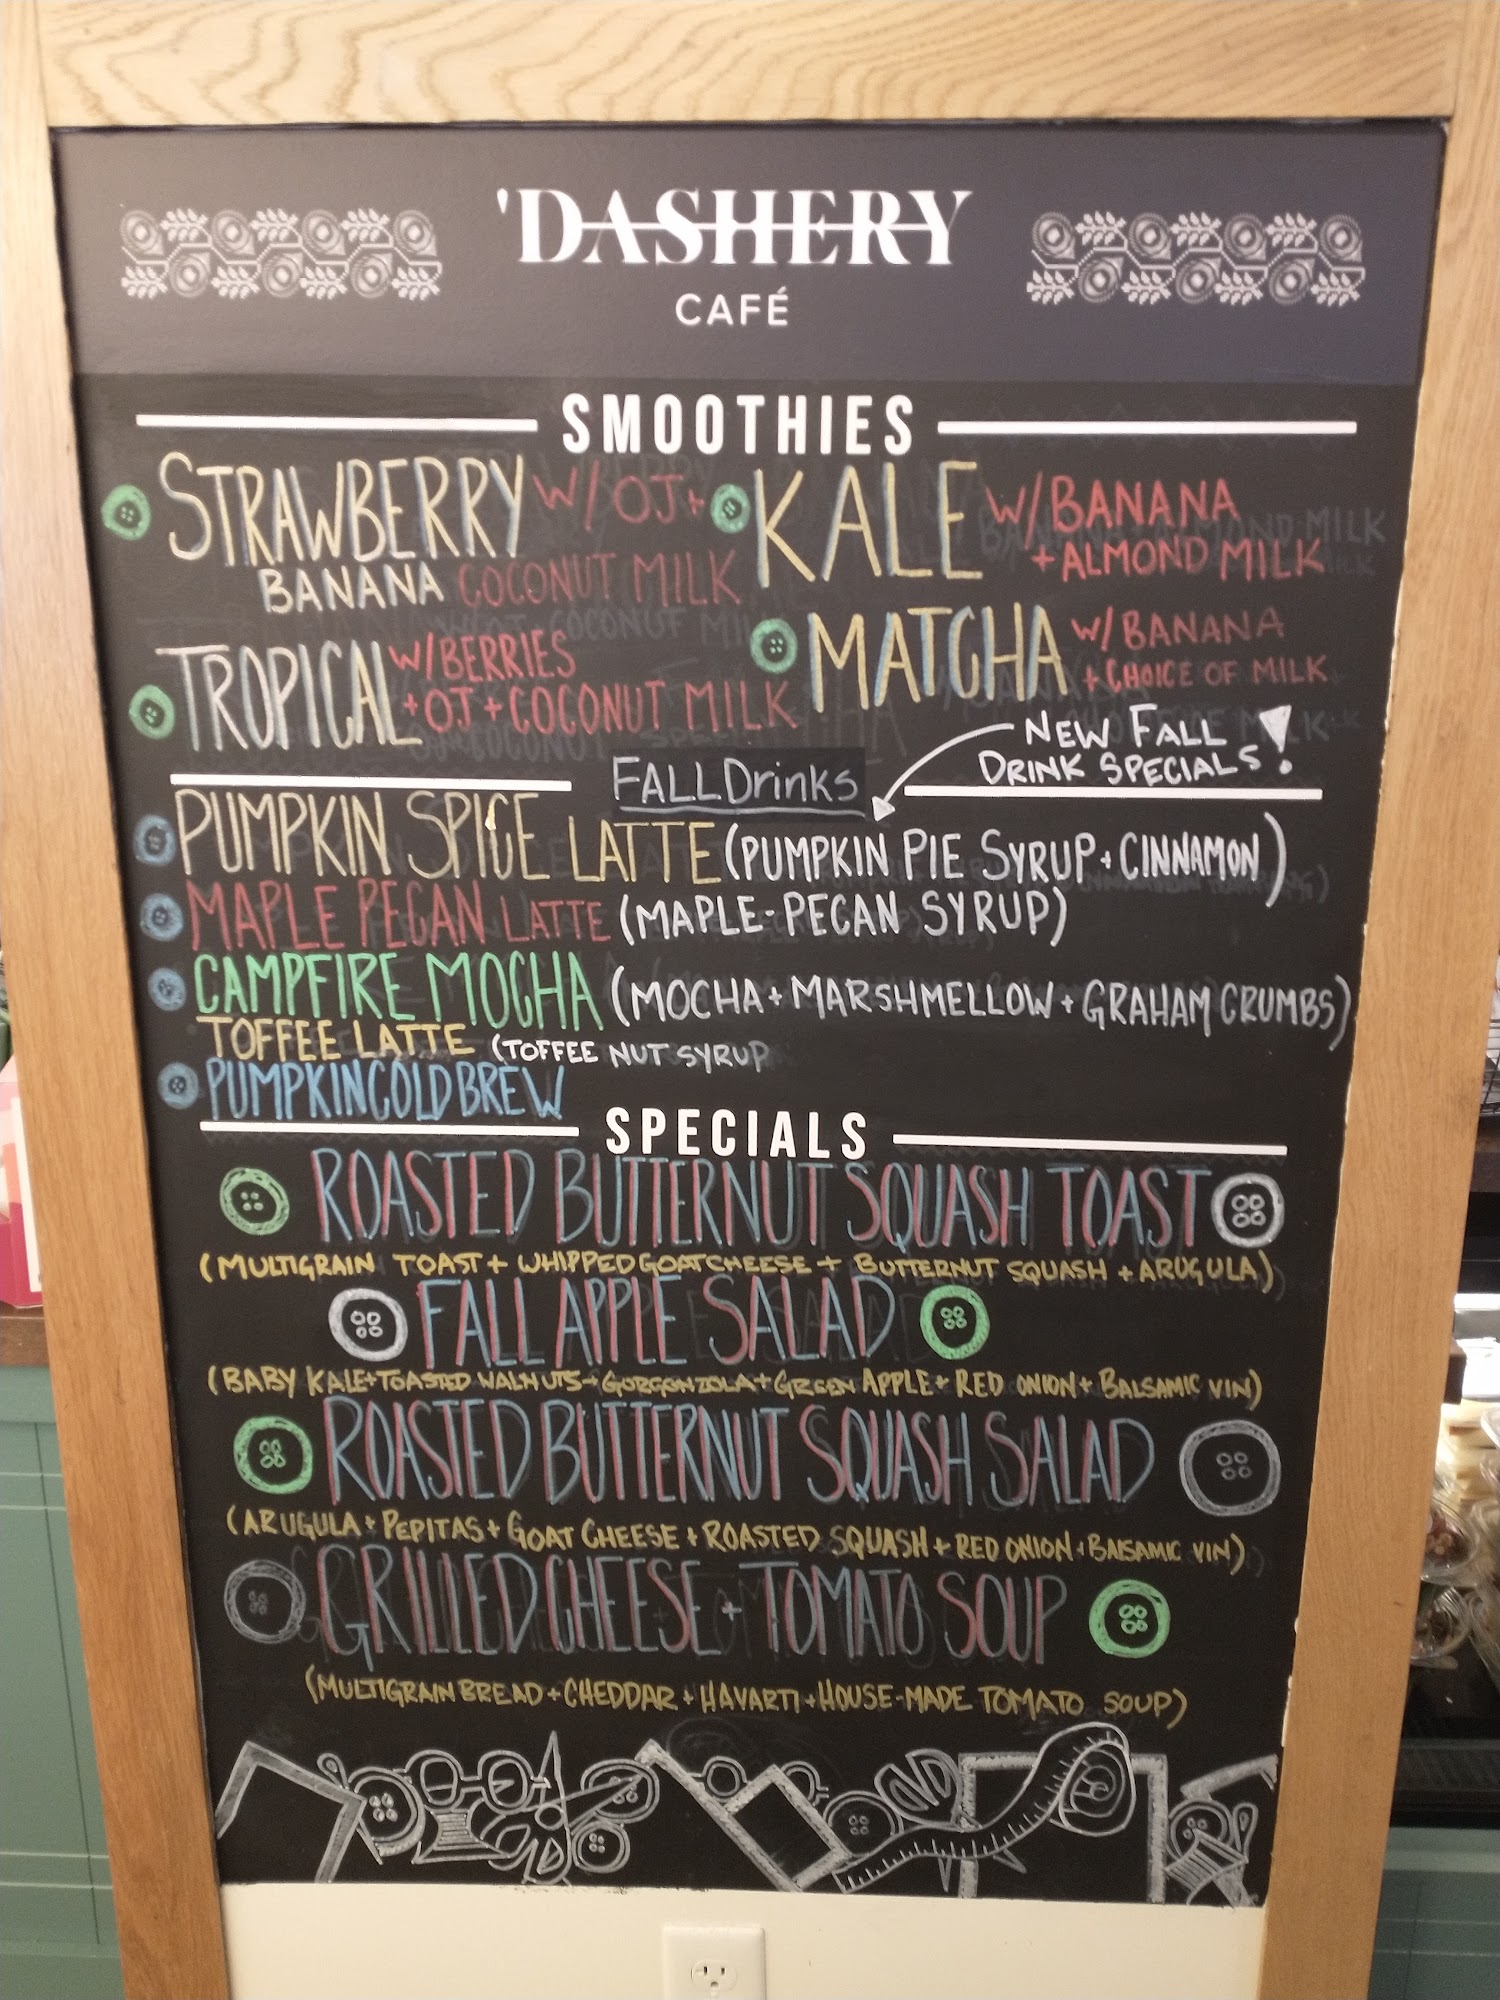 'DASHERY
CAFÉ
SMOOTHIES
STRAWBERRY W/OJ+
BANANA COCONUT MILK
KALE W/BANANA
+ALMOND MILK
TROPICAL W/BERRIES
+OJ+COCONUT MILK
MATCHA W/BANANA
+CHOICE OF MILK
NEW FALL
DRINK SPECIALS!
FALL Drinks
PUMPKIN SPICE LATTE (PUMPKIN PIE SYRUP+CINNAMON)
MAPLE PECAN LATTE (MAPLE-PECAN SYRUP)
CAMPFIRE MOCHA (MOCHA+MARSHMELLOW+GRAHAM CRUMBS)
TOFFEE LATTE (TOFFEE NUT SYRUP
PUMPKIN COLD BREW
SPECIALS
ROASTED BUTTERNUT SQUASH TOAST
(MULTIGRAIN TOAST+WHIPPED GOAT CHEESE+BUTTERNUT SQUASH+ARUGULA)
FALL APPLE SALAD
(BABY KALE+TOASTED WALNUTS+GORGONZOLA+GREEN APPLE+RED ONION+BALSAMIC VIN)
ROASTED BUTTERNUT SQUASH SALAD
(ARUGULA+PEPITAS+GOAT CHEESE+ROASTED SQUASH+RED ONION+BALSAMIC VIN)
GRILLED CHEESE+TOMATO SOUP
(MULTIGRAIN BREAD+CHEDDAR+HAVARTI+HOUSE-MADE TOMATO SOUP)